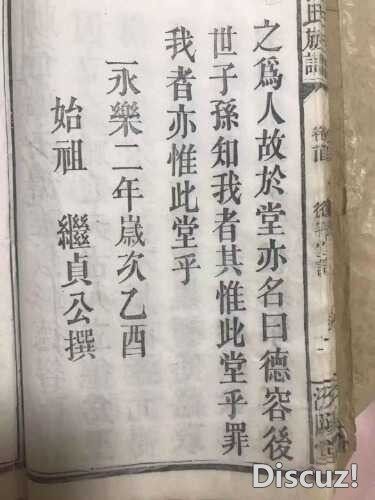 之爲人故於堂亦名曰德容後
世子孫知我者其惟此堂乎罪
我者亦惟此堂乎
永樂二年歲次乙酉
始祖 繼貞公撰
氏族譜
Discuz!